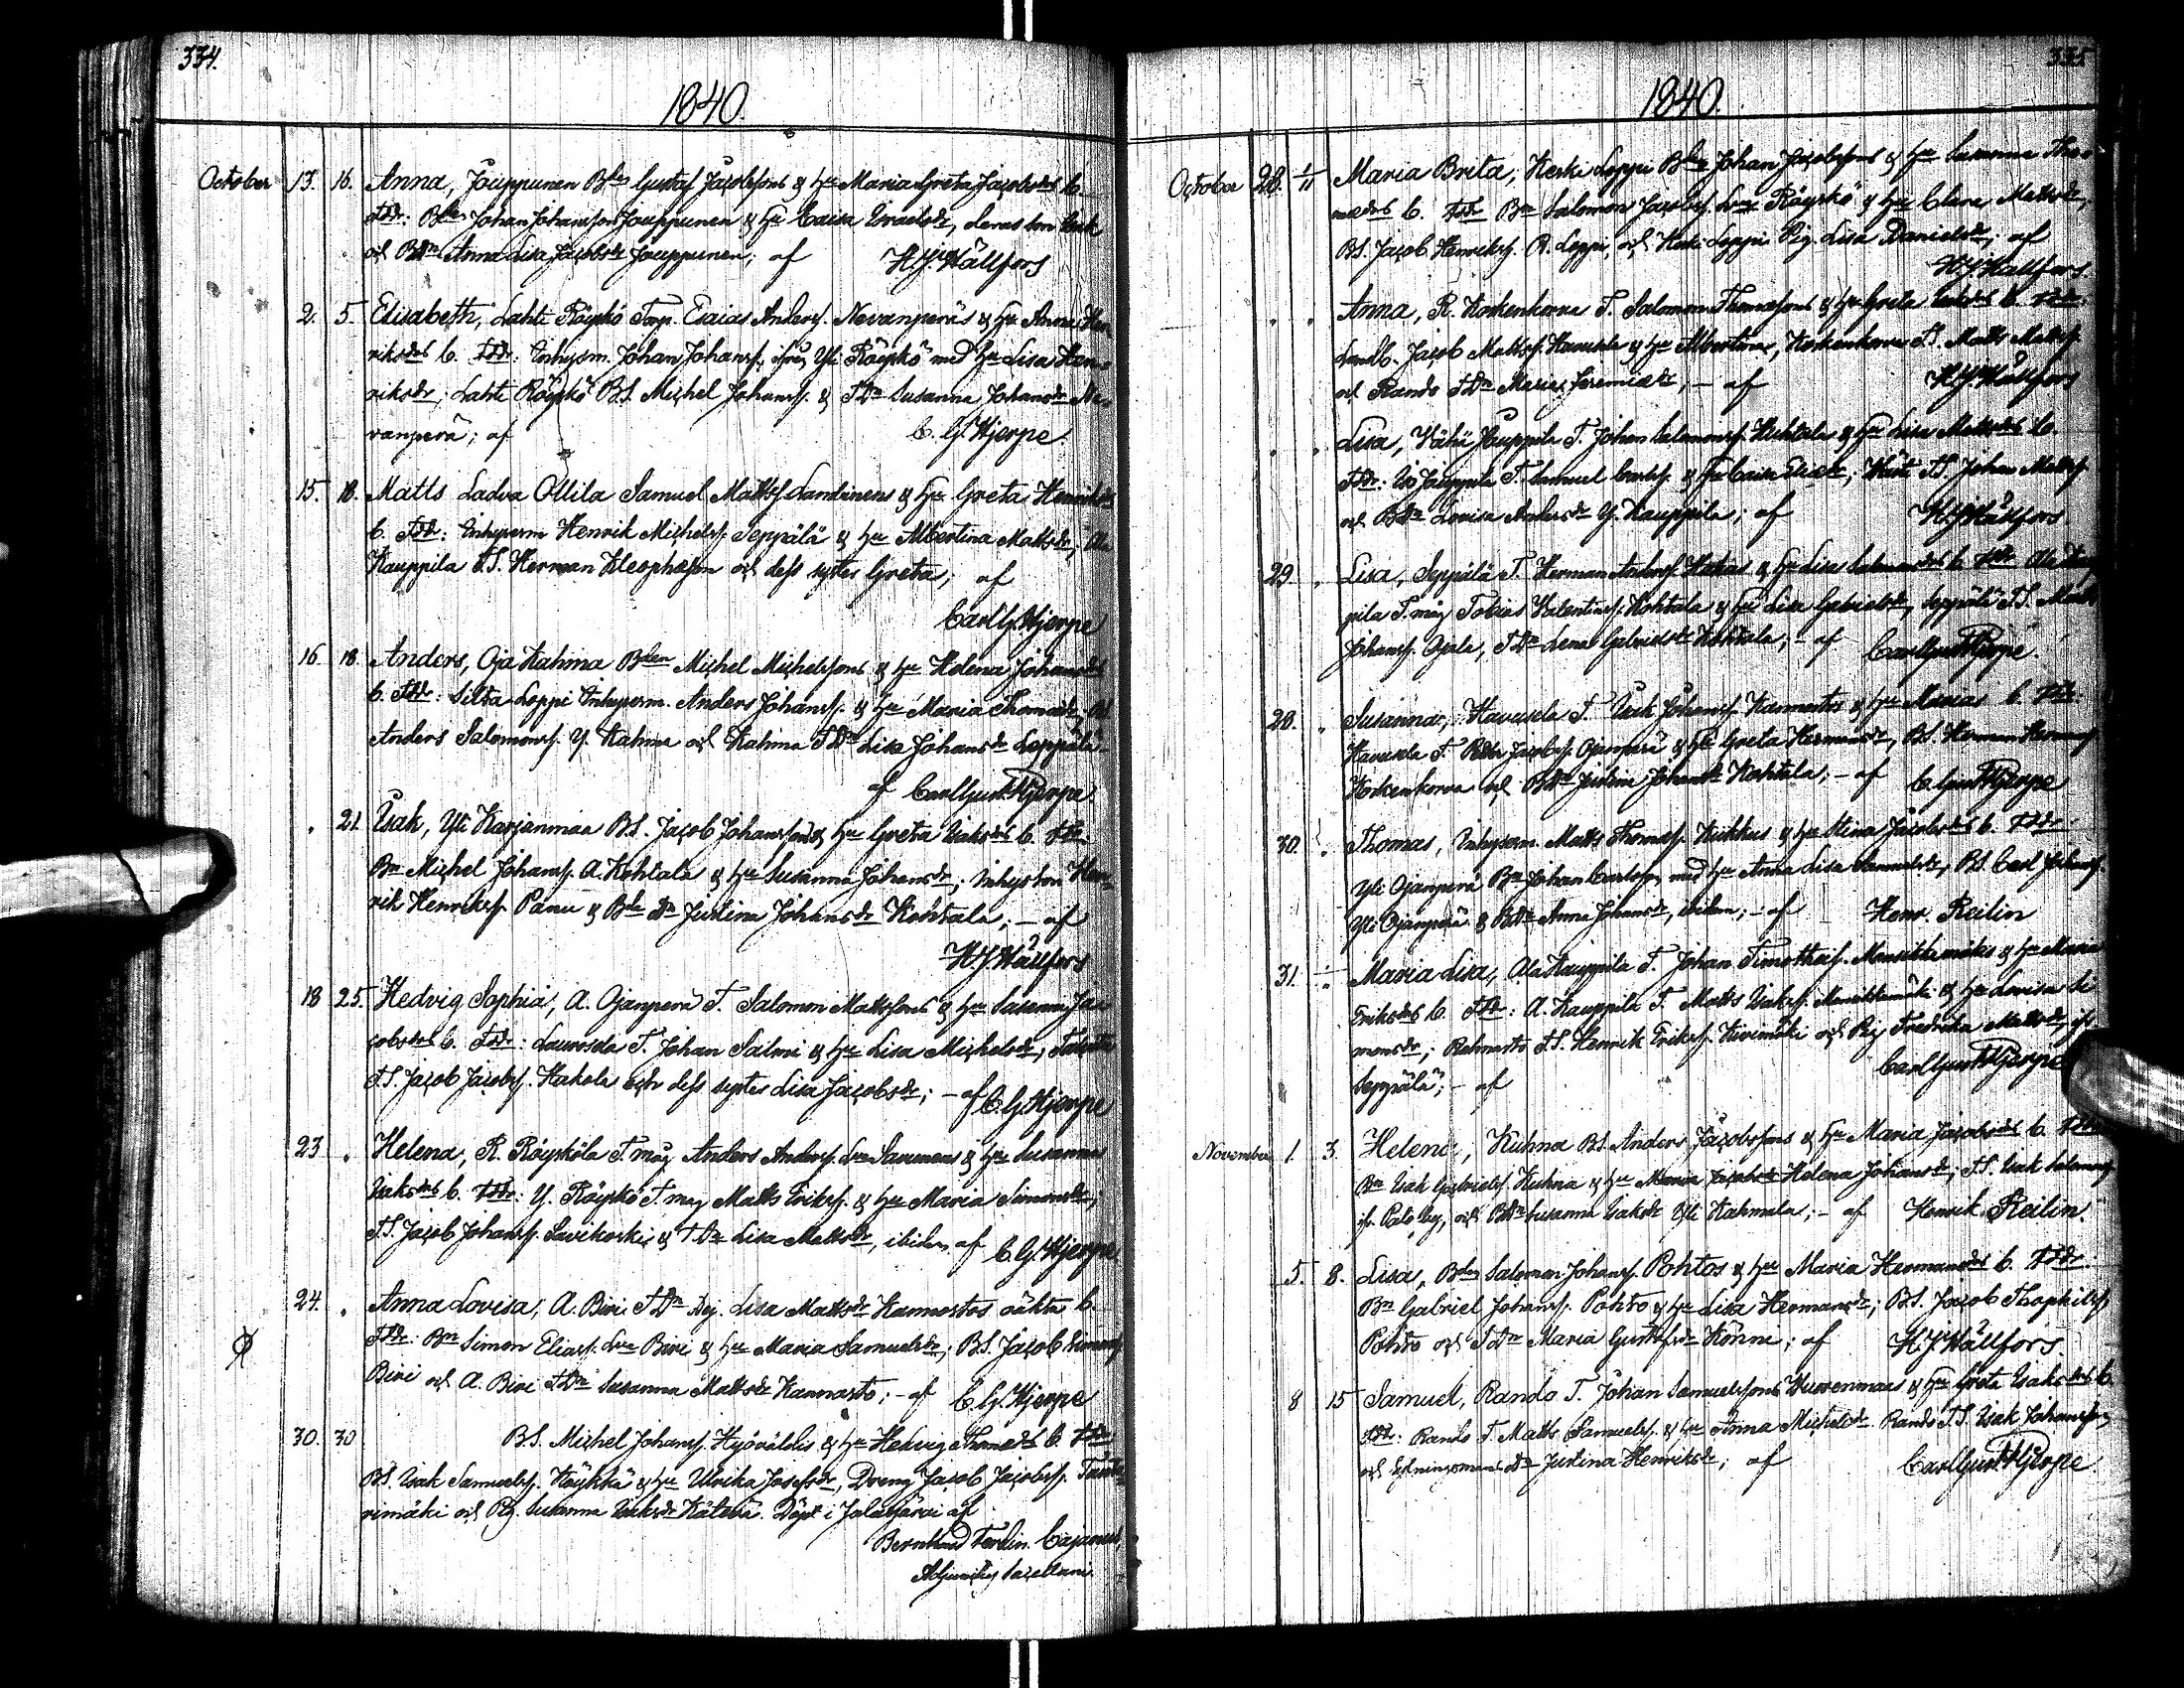 334.
1840.
October 13. 16. Anna, Jouppinen Bden Gustaf Jacobssons & hu Maria Greta Jacobsdrs b.
Fddr: Bden Johan Johansson Jouppinen & hu Caisa Israelsdr, deras son Isak
och BDn Anna Lisa Jacobsdr Jouppinen; af H.J. Wållfors
2. 5. Elisabeth, Lahti Röyskö Torp. Esaias Anders. Nevanperäs & hu Anna Hen-
riksdrs b. Fddr: Inhysm. Johan Johanss. ifrån Yli Röyskö med hu Lisa Hen-
riksdr; Lahti Röyskö B.S. Michel Johanss. & TDn Susanna Johansdr Ne-
vanperä; af C. G. Hjerpe.
15. 18. Matts Ladva Ollila Samuel Mattss. Landinens & hu Greta Henriksdrs
b. Fddr: Inhysm Henrik Michelss. Seppälä & hu Albertina Mattsdr; Ala
Kauppila T.S. Herman Kleophasson och dess syster Greta; af
Carl G. Hjerpe
16. 18 Anders, Oja Kahma Bden Michel Michelssons & hu Helena Johansdrs
b. Fddr: Silta-Loppi Inhysm. Anders Johanss. & hu Maria Thomasdr;
Anders Salomonss. Y. Kahma och Kahma TDn Lisa Johansdr Loppälä
af Carl Gust. Hjerpe
" 21 Isak, Yli Karjanmaa B.S. Jacob Johanssons & hu Greta Isaksdrs b. Fddr
Bn Michel Johanss. A. Kohtala & hu Susanna Johansdr; Inhys son Hen-
rik Henrikss. Panu & Bde Dn Justina Johansdr Kohtala; – af
H J Wållfors
18 25. Hedvig Sophia, A. Ojanperä T. Salomon Mattssons & hu Susanna Ja-
cobsdrs b. Fddr: Laurosela T. Johan Salmi & hu Lisa Michelsdr;
T.S. Jacob Jacobss. Hakola och dess syster Lisa Jacobsdr; – af C. G. Hjerpe
23 " Helena, R. Röysköla T. måg Anders Anderss. & hu Susanna
Isaksdrs b. Fddr: Y. Röyskö T. mag Matts Erikss. & hu Maria Simonsdr,
T.S. Jacob Johanss. Savikoski & TDn Lisa Mattsdr, ibidem, af C. G. Hjerpe
24. " Anna Lovisa, A. Biri TDn Pig. Lisa Mattsdr Kannostos oäkta b.
Fddr: Bn Simon Eliass. Biri & hu Maria Samuelsdr; B.S. Jacob Simonss.
Biri och A. Biri TDn Susanna Mattsdr Kannosto; – af C. G. Hjerpe
30. 30 B.S. Michel Johanss. Hyövältis & hu Hedvig Thomasdrs b. Fddr
B.S. Isak Samuelss. Köykkä & hu Ulrika Josefsdr, Dreng Jacob Jacobss.
rimäki och Pig. Susanna Isaksdr Kätevä. Döpt i Jalasjärvi af
Bernhard Ferdin. Cajanus
Adjunctus Sacellani.
335
1840.
October 28. 1/11 Maria Brita, Keski Loppi Bden Johan Jacobssons & hu Susanna Tho-
masdrs b. Fddr Bn Salomon Jacobss. Röyskö & hu Clara Mattsdr,
B.S. Jacob Henrikss. R. Loppi, och Keski-Loppi Pig. Lisa Danielsdr; af
H J Wållfors.
" " Anna, R. Koskenkorva T. Salomon Thomassons & hu Greta Isaksdrs b. Fddr:
Landb. Jacob Mattss. Havusela & hu Albertina, Koskenkorva T.S. Matts Mattss.
och Rando TDn Maria Jeremiædr; – af H J Wållfors
" " Lisa, Vähä Jauppila T. Johan Salomonss. Kohtala & hu Lisa Mattsdrs b.
Fddr: Iso Jauppila T. Samuel & hu Caisa; TS. Johan Mattss.
och BDn Lovisa Andersdr Y. Kauppila; af H J Wållfors
29 " Lisa, Seppälä T. Herman Anderss. Hakas & hu Lisa Salomonsdrs b. Fddr Ala Kaup-
pila T. måg Tobias Valentinss. Kohtala & hu Lisa Gabrielsdr, Seppälä T.S. Matts
Johanss. Ojala, TDn Lena Gabrielsdr Kohtala; – af Carl Gust Hjerpe.
28. " Susanna, Havusela T. Isak Johanss. Kannostos & hu Marias b. Fddr.
Havusela T. Jacobss. Ojanperä & hu Greta Hermansdr, B.S. Herman Hermanss.
Koskenkorva och BDn Justina Johansdr Kohtala; – af C. Gust Hjerpe
30. " Thomas, Inhysm. Matts Thomass. Kuikkus & hu Stina Jacobsdrs b. Fddr
Yli Ojanperä Bn Johan Carlsson med hu Anna Lisa Samuelsdr, B.S. Carl Johanss.
Yli Ojanperä & BDn Anna Johansdr, ibidem; – af Henr. Reilin
31. " Maria Lisa, Ala Kauppila T. Johan Timotheiss. Mansikkamäkis & hu Maria
Eriksdrs b. Fddr: A. Kauppila T. Matts Isakss. Mansikkamäki & hu Lovisa Si-
monsdr; Rahnasto T.S. Henrik Erikss. Kivimäki och Pig Fredrika Mattsdr, ifr
Seppälä; – af Carl Gust Hjerpe
November 1. 3. Helena, Kuhna B.S. Anders Jacobssons & hu Maria Jacobsdrs b. Fddr
Bn Isak Gabrielss. Kuhna & hu Maria Jacobsdr Helena Johansdr; T.S. Isak Salomonss
ifr. Palo by, och BDn Susanna Isaksdr Yli Kahmala; – af Henrik Reilin.
5. 8. Lisa, Bden Salomon Johanss. Pohtos & hu Maria Hermansdrs b. Fddr:
Bn Gabriel Johanss. Pohto & hu Lisa Hermansdr; B.S. Jacob Theophilss.
Pohto och TDn Maria Gustafsdr Könni; af H. J. Wållfors.
8 15 Samuel, Rando T. Johan Samuelssons Vuorenmaas & hu Greta Isaksdrs b.
Fddr: Rando T. Matts Samuelss. & hu Anna Michelsdr. Rando T.S. Isak Johansson,
och Dn Justina Henriksdr; af Carl Gust Hjerpe.